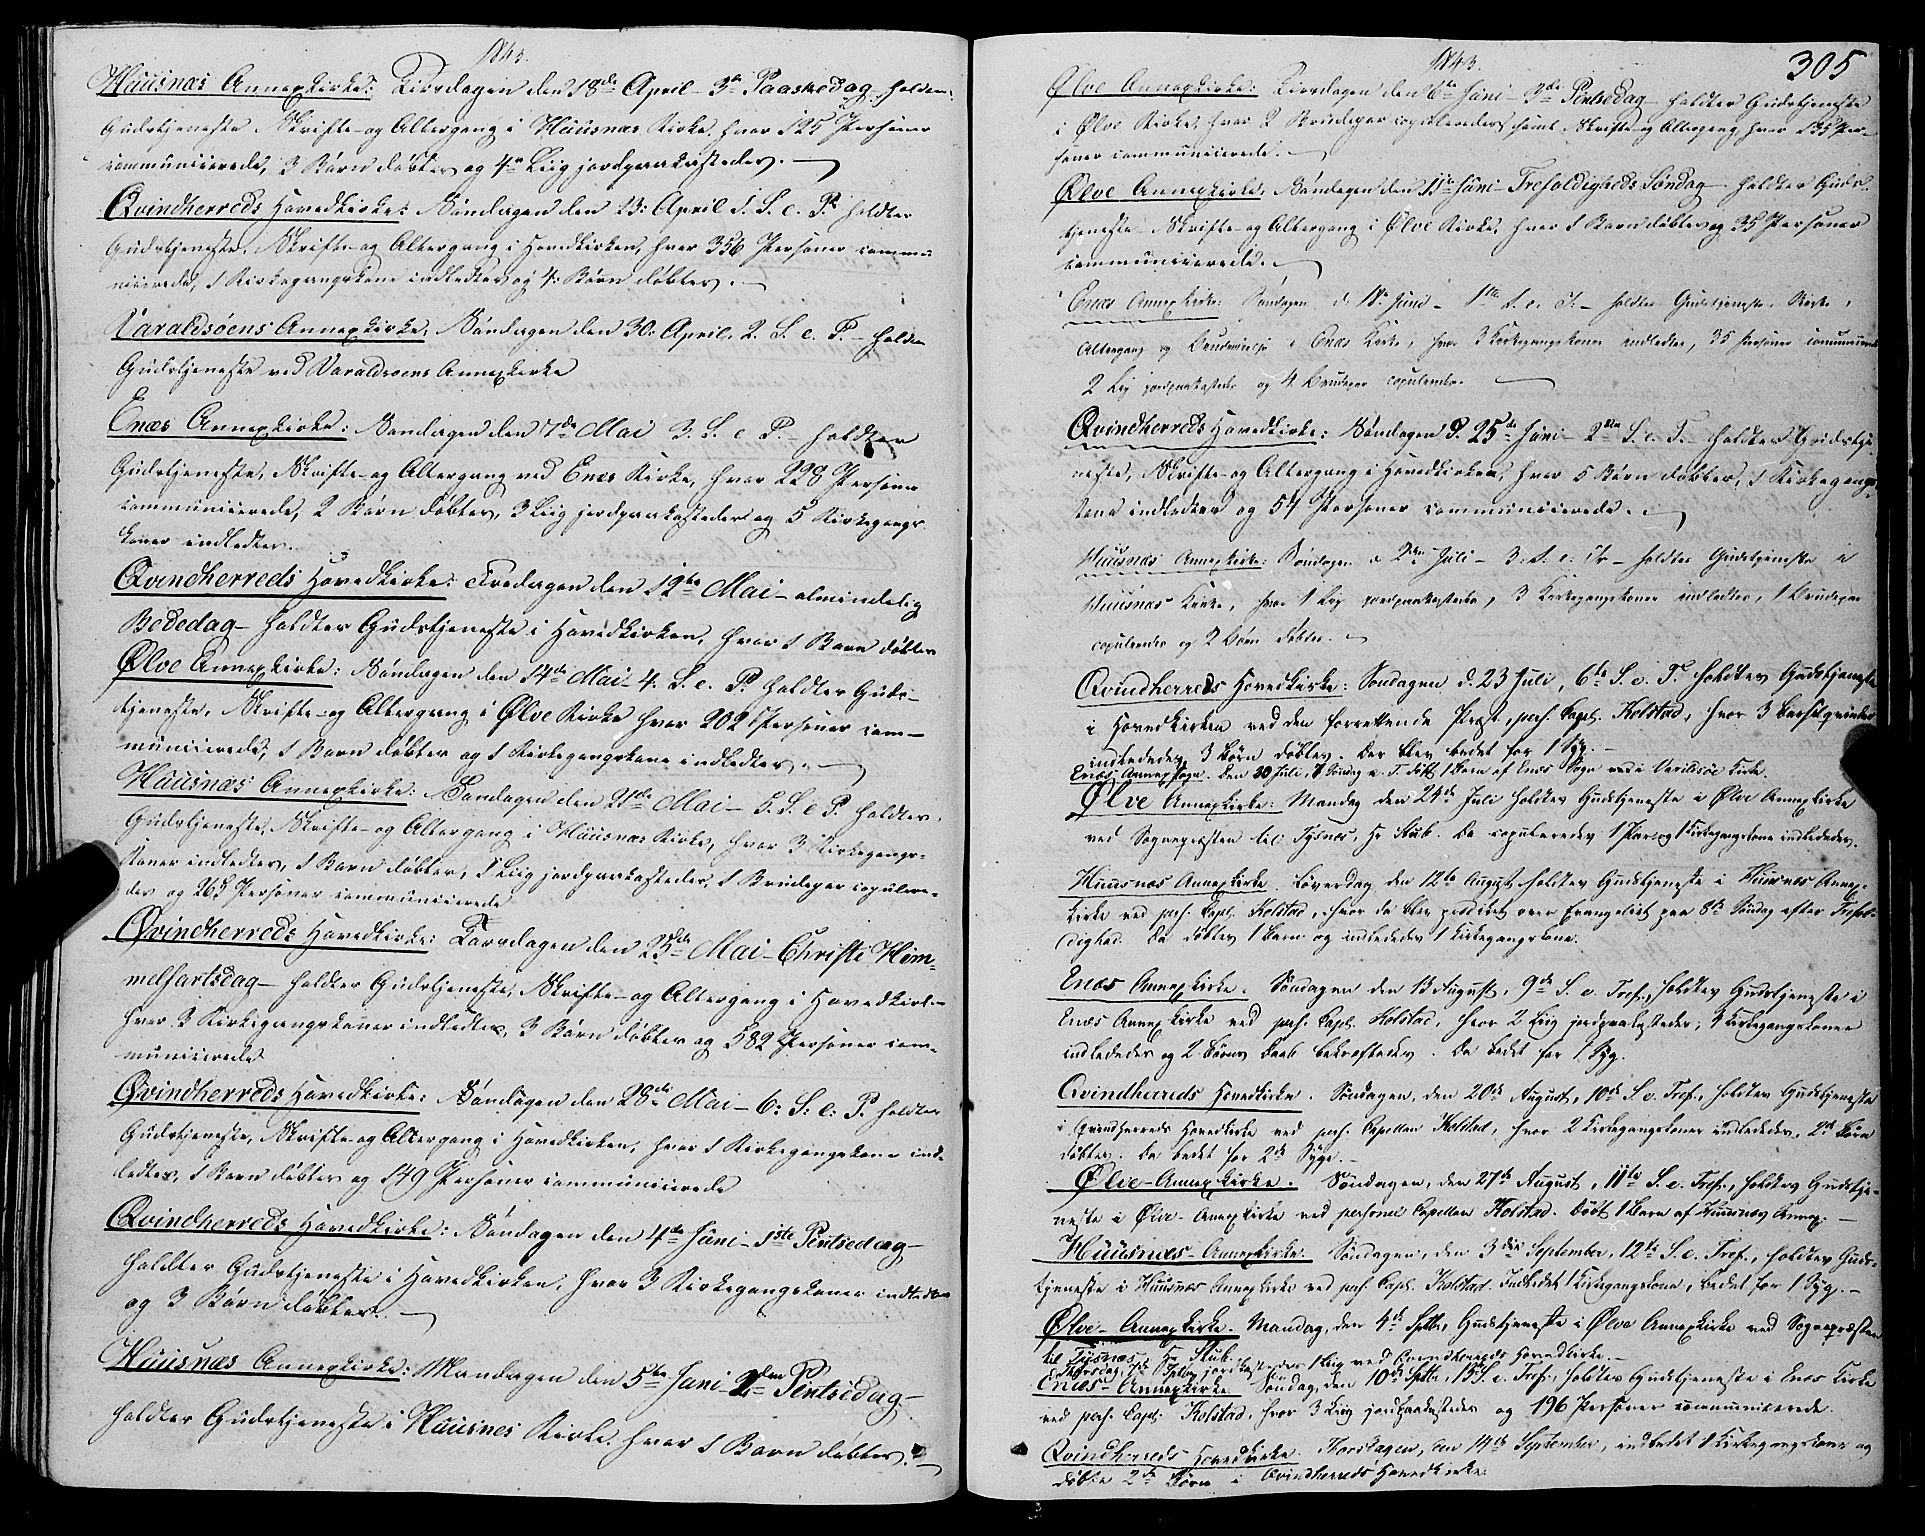 1843.
Huusnæs Annexkirke: Tirsdagen den 18de April - 3die Paaskedag holdtes
Gudstjeneste Skrifte- og Altergang i Huusnæs Kirke, hvor 125 Personer
communicerede, 3 Børn døbtes og 4re Liig jordpaakastedes.
Qvindherreds Hovedkirke: Søndagen den 23: April 1. S. e. P. holdtes
Gudstjeneste, Skrifte- og Altergang i Hovedkirken, hvor 356 Personer commu-
nicerede, 1 Kirkegangskone indledtes og 4: Børn døbtes.
Varaldsøens Annexkirke, Søndagen den 30: April, 2. S. e. P. - holdtes
Gudstjeneste ved Varaldsøens Annexkirke
Enæs Annexkirke: Søndagen den 7de Mai 3. S. e. P. - holdtes
Gudstjeneste, Skrifte- og Altergang ved Enæs Kirke, hvor 228 Personer
communicerede, 2 Børn døbtes, 3 Liig jordpaakastedes og 5 Kirkegangs-
koner indledtes.
Qvindherreds Hovedkirke: Fredagen den 12te Mai - almindelig
Bededag - holdtes Gudstjeneste i Hovedkirken, hvor 1 Barn døbtes
Ølve Annexkirke: Søndagen den 14de Mai - 4. S. e. P. holdtes Guds-
tjeneste, Skrifte- og Altergang i Ølve Kirke hvor 202 Personer com-
municerede, 1 Barn døbtes og 1 Kirkegangskone indledtes.
Huusnæs Annexkirke: Søndagen den 21de Mai - 5. S. e. P. holdtes
Gudstjeneste, Skrifte- og Altergang i Huusnæs Kirke, hvor 3 Kirkegangs-
koner indledtes, 1 Barn døbtes, 1 Liig jordpaakastedes, 1 Brudepar copulere-
des og 265 Personer communicerede
Qvindherreds Hovedkirke: Torsdagen den 25de Mai - Christi Him-
melfartsdag - holdtes Gudstjeneste, Skrifte- og Altergang i Hovedkirken
hvor 3 Kirkegangskoner indledtes, 3 Børn døbtes og 582 Personer com-
municerede
Qvindherreds Hovedkirke: Søndagen den 28de Mai - 6: S: e: P. holdtes
Gudstjeneste, Skrifte- og Altergang i Hovedkirken, hvor 1 Kirkegangskone ind-
ledtes, 1 Barn døbtes og 149 Personer communicerede
Qvindherreds Hovedkirke: Søndagen den 4de Juni - 1ste Pintsedag -
holdtes Gudstjeneste i Hovedkirken, hvor 3 Kirkegangskoner indledtes
og 3 Børn døbtes.
Huusnæs Annexkirke: Mandagen den 5te Juni - 2den Pintsedag -
holdtes Gudstjeneste i Huusnæs Kirke, hvor 1 Barn døbtes.
1843.
305
Ølve Annexkirke: Tirsdagen den 6te Juni - 3die Pintsedag - holdtes Gudstjeneste
i Ølve Kirke, hvor 2 Brudepar copuleredes samt Skrifte- og Altergang, hvor 135 Per-
soner communicerede.
Ølve Annexkirke, Søndagen den 11te Juni - Trefoldigheds Søndag - holdtes Guds-
tjeneste Skrifte- og Altergang i Ølve Kirke, hvor 1 Barn døbtes og 35 Personer
communicerede.
Enæs Annexkirke: Søndagen d. 18 Juni - 1ste S. e. T. - holdtes Gudstjeneste,
Altergang og i Enæs Kirke, hvor 3 Kirkegangskoner indledtes, 35 Personer communicerede
2 Liig jordpaakastedes og 4 Brudepar copuleredes.
Qvindherreds Hovedkirke: Søndagen d. 25de Juni - 2den S. e. T. - holdtes Gudstje-
neste, Skrifte- og Altergang i Hovedkirken, hvor 5 Børn døbtes, 1 Kirkegangs-
kone indledtes og 57 Personer communicerede.
Huusnæs Annexkirke: Søndagen d 2den Juli - 3. S. e. Tr - holdtes Gudstjeneste i
Huusnæs Kirke, hvor 1 Liig jordpaakastedes, 3 Kirkegangskoner indledtes, 1 Brudepar
copuleredes og 2 Børn døbtes.
Qvindherreds Hovedkirke: Søndagen d. 23 Juli, 6te S. e. T. holdtes Gudstjeneste
i Hovedkirken ved den forrettende Præst, pers. Capl. Kolstad, hvor 3 Barselqvinder
indlededes, 3 Børn døbtes. Der blev bedet for 1 Syg.
Enæs Annexsogn. Den 30 Juli, 7 Søndag e. T. døbt 1 Barn af Enæs Sogn ved i Varildsøe Kirke.
Ølve Annexkirke: Mandag den 24de Juli holdtes Gudstjeneste i Ølve Annexkirke
ved Sognepræsten til Tysnes, Hr Stub. Da copuleredes 1 Par og 1 Kirkegangskone indlededes.
Huusnæs Annexkirke. Løverdag den 12te August holdtes Gudstjeneste i Huusnæs Annex-
kirke ved pers. Capl. Kolstad, hvor da blev prediket over Evangeliet paa 8de Søndag efter Trefol-
dighed. Da døbtes 1 Barn og indlededes 1 Kirkegangskone.
Enæs Annexkirke. Søndagen den 13 August, 9de S. e. Tref., holdtes Gudstjeneste i
Enæs Annexkirke ved pers. Capl. Kolstad, hvor 2 Liig jordpaakastedes, 4 Kirkegangskoner
indlededes og 2 Børns Daab bekræftedes. Da bedet for 1 Syg.
Qvindherreds Hovedkirke. Søndagen, den 20de August, 10de S. e. Tref., holdtes Gudstjeneste
i Qvindherreds Hovedkirke ved pers. Capellan Kolstad, hvor 2 Kirkegangskoner indlededes, 2de Børn
døbtes. Da bedet for 2de Syge.
Ølve-Annexkirke. Søndagen, den 27de August, 11te S. e. Tref., holdtes Gudstje-
neste i Ølve-Annexkirke ved personel Capellan Kolstad. Døbt 1 Barn af Huusnæs Annex.
Huusnæs-Annexkirke. Søndagen, den 3die September, 12te S. e. Tref., holdtes Guds-
tjeneste i Huusnæs Annexkirke ved pers. Capl. Kolstad. Indledet 1 Kirkegangskone, bedet for 1 Syg.
Ølve-Annexkirke. Mandag, den 4de Septbr, Gudstjeneste i Ølve Annexkirke ved Sognepræsten
til Tysnæs, Hr Stub.
Thorsdag, 7de Septbr jordkastedes 1 Liig ved Qvindherreds Hovedkirke.
Enæs-Annexkirke. Søndag, den 10de Septbr, 13 S. e. Tref., holdtes Gudstjeneste i Enæs Kirke
ved pers. Capl. Kolstad, hvor 3 Liig jordpaakastedes og 196 Personer communicerede.
Qvindherreds Hovedkirke. Thorsdagen, den 14de September, indledet 1 Kirkegangskone og
døbte 2de Børn i Qvindherreds Hovedkirke.